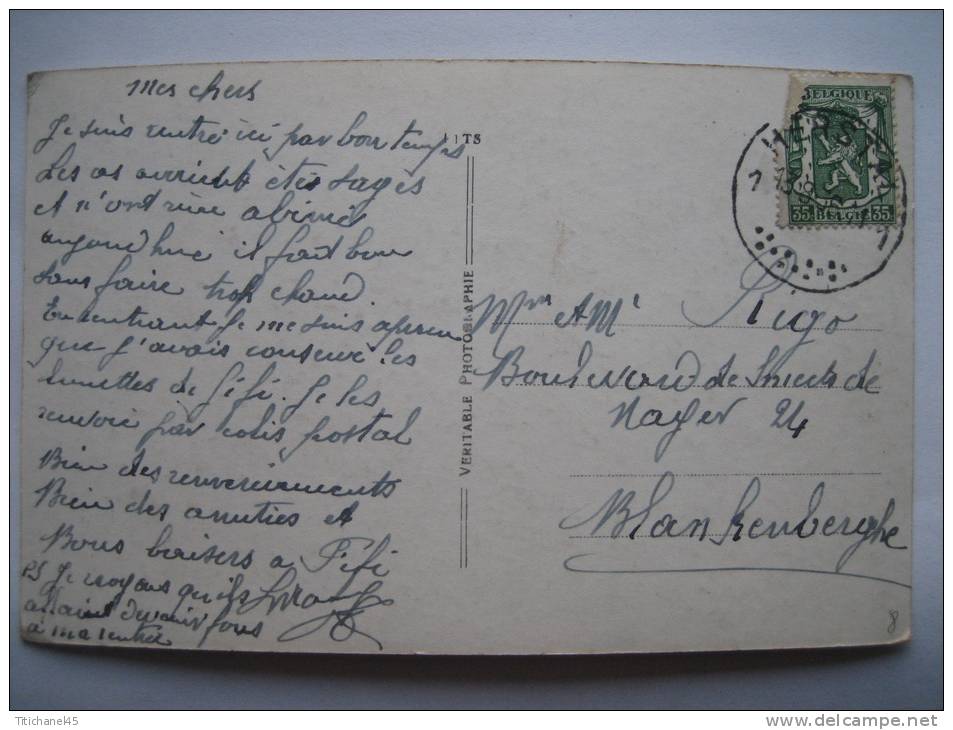 mes chers
Je suis rentré ici par bon temps
Les as avaient étés sages
et n'ont rien abimé
aujourd'hui il fait bon
sans faire trop chaud.
En rentrant Je me suis aperçu
que J'avais conservé les
lunettes de Fifi. Je les
renvoie par colis postal
Bien des remerciements
Bien des amitiés et
Bons baisers a Fifi
PS Je croyais qu'ils
allaient devenir fous
a ma rentrée
VERITABLE PHOTOGRAPHIE
BELGIQUE
35 BELGIE 35
HERSTAL
Mme et Mr Rigo
Boulevard de Smedt de
Nayer 24
Blankenberghe
8
Ttichane45
www.delcampe.net